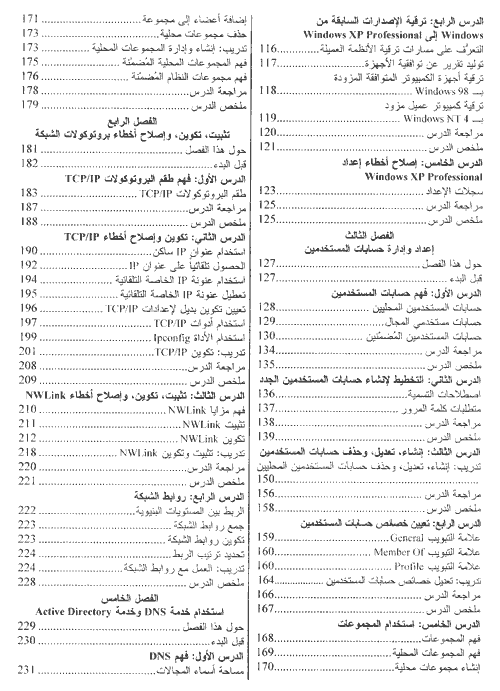 الدرس الرابع: ترقية الإصدارات السابقة من
Windows إلى Windows XP Professional
التعرُّف على مسارات ترقية الأنظمة العميلة.....116
توليد تقرير عن توافقية الأجهزة.....117
ترقية أجهزة الكمبيوتر المتوافقة المزودة
بـ Windows 98.....118
ترقية كمبيوتر عميل مزود
بـ Windows NT 4.....119
مراجعة الدرس.....120
ملخص الدرس.....121
الدرس الخامس: إصلاح أخطاء إعداد
Windows XP Professional
سجلات الإعداد.....123
مراجعة الدرس.....125
ملخص الدرس.....125
الفصل الثالث
إعداد وإدارة حسابات المستخدمين
حول هذا الفصل.....127
قبل البدء.....127
الدرس الأول: فهم حسابات المستخدمين
حسابات المستخدمين المحليين.....128
حسابات مستخدمي المجال.....129
حسابات المستخدمين المُضمَّنين.....130
مراجعة الدرس.....134
ملخص الدرس.....135
الدرس الثاني: التخطيط لإنشاء حسابات المستخدمين الجدد
اصطلاحات التسمية.....136
متطلبات كلمة المرور.....137
مراجعة الدرس.....138
ملخص الدرس.....139
الدرس الثالث: إنشاء، تعديل، وحذف حسابات المستخدمين
تدريب: إنشاء، تعديل، وحذف حسابات المستخدمين المحليين
.....150
مراجعة الدرس.....156
ملخص الدرس.....158
الدرس الرابع: تعيين خصائص حسابات المستخدمين
علامة التبويب General.....159
علامة التبويب Member Of.....160
علامة التبويب Profile.....160
تدريب: تعديل خصائص حسابات المستخدمين.....164
مراجعة الدرس.....166
ملخص الدرس.....167
الدرس الخامس: استخدام المجموعات
فهم المجموعات.....168
فهم المجموعات المحلية.....169
إنشاء مجموعات محلية.....170
إضافة أعضاء إلى مجموعة.....171
حذف مجموعات محلية.....173
تدريب: إنشاء وإدارة المجموعات المحلية.....173
فهم المجموعات المحلية المُضمَّنة.....175
فهم مجموعات النظام المُضمَّنة.....176
مراجعة الدرس.....178
ملخص الدرس.....179
الفصل الرابع
تثبيت، تكوين، وإصلاح أخطاء بروتوكولات الشبكة
حول هذا الفصل.....181
قبل البدء.....182
الدرس الأول: فهم طقم البروتوكولات TCP/IP
طقم البروتوكولات TCP/IP.....183
مراجعة الدرس.....187
ملخص الدرس.....188
الدرس الثاني: تكوين وإصلاح أخطاء TCP/IP
استخدام عنوان IP ساكن.....190
الحصول تلقائياً على عنوان IP.....192
استخدام عنونة IP الخاصة التلقائية.....194
تعطيل عنونة IP الخاصة التلقائية.....195
تعيين تكوين بديل لإعدادات TCP/IP.....196
استخدام أدوات TCP/IP.....197
استخدام الأداة Ipconfig.....199
تدريب: تكوين TCP/IP.....201
مراجعة الدرس.....208
ملخص الدرس.....209
الدرس الثالث: تثبيت، تكوين، وإصلاح أخطاء NWLink
فهم مزايا NWLink.....210
تثبيت NWLink.....211
تكوين NWLink.....212
تدريب: تثبيت وتكوين NWLink.....218
مراجعة الدرس.....220
ملخص الدرس.....221
الدرس الرابع: روابط الشبكة
الربط بين المستويات البنيوية.....222
جمع روابط الشبكة.....223
تكوين روابط الشبكة.....223
تحديد ترتيب الربط.....224
تدريب: العمل مع روابط الشبكة.....224
ملخص الدرس.....228
الفصل الخامس
استخدام خدمة DNS وخدمة Active Directory
حول هذا الفصل.....229
قبل البدء.....230
الدرس الأول: فهم DNS
مساحة أسماء المجالات.....231